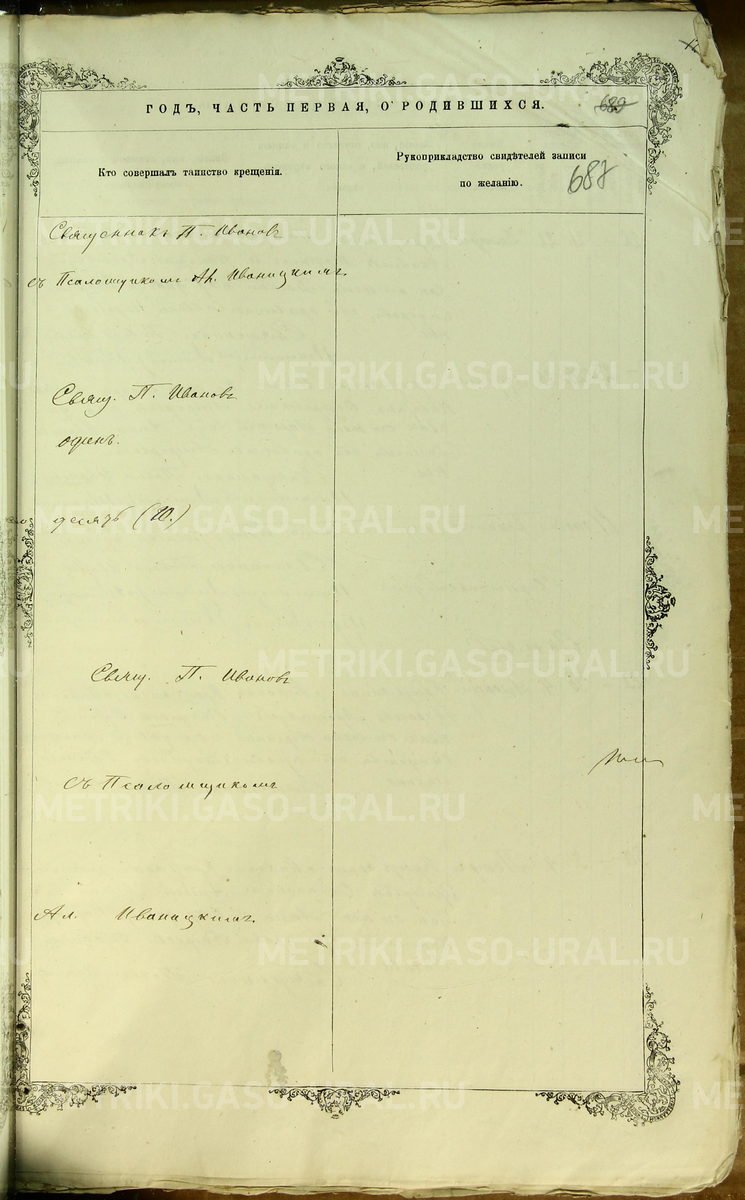 ГОДЪ, ЧАСТЬ ПЕРВАЯ, О РОДИВШИХСЯ.
689
Кто совершалъ таинство крещенія.
Рукоприкладство свидѣтелей записи
по желанію.
687
Священникъ П. Ивановъ
съ Псаломщикомъ Ал. Иваницкимъ.
Свящ. П. Ивановъ
одинъ.
десять (10.)
Свящ. П. Ивановъ
съ Псаломщикомъ
Ал. Иваницкимъ.
METRIKI.GASO-URAL.RU